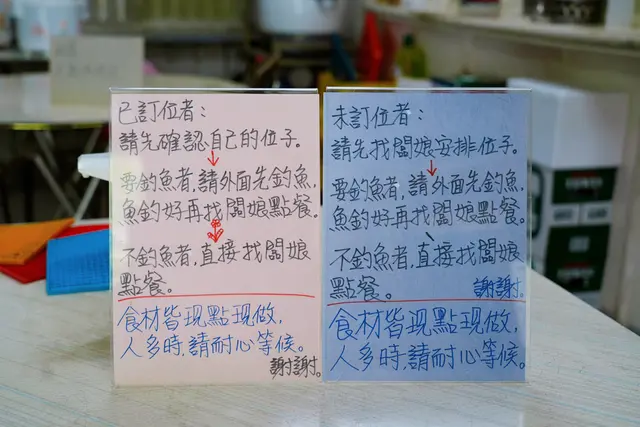 已訂位者：
請先確認自己的位子。
要釣魚者，請外面先釣魚，
魚釣好再找闆娘點餐。
不釣魚者，直接找闆娘
點餐。
食材皆現點現做，
人多時，請耐心等候。
謝謝。
未訂位者：
請先找闆娘安排位子。
要釣魚者，請外面先釣魚，
魚釣好再找闆娘點餐。
不釣魚者，直接找闆娘
點餐。 謝謝。
食材皆現點現做，
人多時，請耐心等候。